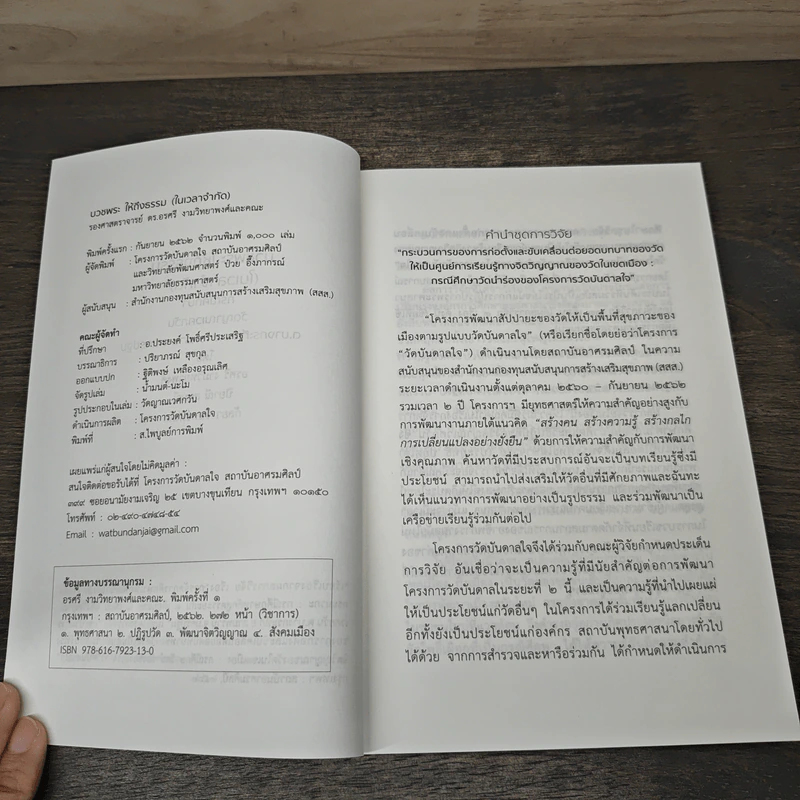 บวชพระ ให้ถึงธรรม (ในเวลาจำกัด)
รองศาสตราจารย์ ดร.อรศรี งามวิทยาพงศ์และคณะ
พิมพ์ครั้งแรก : กันยายน ๒๕๖๒ จำนวนพิมพ์ ๑,๐๐๐ เล่ม
ผู้จัดพิมพ์ : โครงการวัดบันดาลใจ สถาบันอาศรมศิลป์
และวิทยาลัยพัฒนศาสตร์ ป๋วย อึ๊งภากรณ์
มหาวิทยาลัยธรรมศาสตร์
ผู้สนับสนุน : สำนักงานกองทุนสนับสนุนการสร้างเสริมสุขภาพ (สสส.)
คณะผู้จัดทำ
ที่ปรึกษา : อ.ประยงค์ โพธิ์ศรีประเสริฐ
บรรณาธิการ : ปรียาภรณ์ สุขกุล
ออกแบบปก : ฐิติพงษ์ เหลืองอรุณเลิศ
จัดรูปเล่ม : น้ำมนต์-นะโม
รูปประกอบในเล่ม : วัดญาณเวศกวัน
ดำเนินการผลิต : โครงการวัดบันดาลใจ
พิมพ์ที่ : ส.ไพบูลย์การพิมพ์
เผยแพร่แก่ผู้สนใจโดยไม่คิดมูลค่า :
สนใจติดต่อขอรับได้ที่ โครงการวัดบันดาลใจ สถาบันอาศรมศิลป์
๓๙๙ ซอยอนามัยงามเจริญ ๒๕ เขตบางขุนเทียน กรุงเทพฯ ๑๐๑๕๐
โทรศัพท์ : ๐๒-๔๙๐-๔๗๔๘-๕๔
Email : watbundanjai@gmail.com
ข้อมูลทางบรรณานุกรม :
อรศรี งามวิทยาพงศ์และคณะ. พิมพ์ครั้งที่ ๑
กรุงเทพฯ : สถาบันอาศรมศิลป์, ๒๕๖๒. ๒๗๒ หน้า (วิชาการ)
๑. พุทธศาสนา ๒. ปฏิรูปวัด ๓. พัฒนาจิตวิญญาณ ๔. สังคมเมือง
ISBN 978-616-7923-13-0
คำนำชุดการวิจัย
"กระบวนการของการก่อตั้งและขับเคลื่อนต่อยอดบทบาทของวัด
ให้เป็นศูนย์การเรียนรู้ทางจิตวิญญาณของวัดในเขตเมือง :
กรณีศึกษาวัดนำร่องของโครงการวัดบันดาลใจ"
"โครงการพัฒนาสัปปายะของวัดให้เป็นพื้นที่สุขภาวะของ
เมืองตามรูปแบบวัดบันดาลใจ" (หรือเรียกชื่อโดยย่อว่าโครงการ
"วัดบันดาลใจ") ดำเนินงานโดยสถาบันอาศรมศิลป์ ในความ
สนับสนุนของสำนักงานกองทุนสนับสนุนการสร้างเสริมสุขภาพ (สสส.)
ระยะเวลาดำเนินงานตั้งแต่ตุลาคม ๒๕๖๐ – กันยายน ๒๕๖๒
รวมเวลา ๒ ปี โครงการฯ มียุทธศาสตร์ให้ความสำคัญอย่างสูงกับ
การพัฒนางานภายใต้แนวคิด "สร้างคน สร้างความรู้ สร้างกลไก
การเปลี่ยนแปลงอย่างยั่งยืน" ด้วยการให้ความสำคัญกับการพัฒนา
เชิงคุณภาพ ค้นหาวัดที่มีประสบการณ์อันจะเป็นบทเรียนรู้ซึ่งมี
ประโยชน์ สามารถนำไปส่งเสริมให้วัดอื่นที่มีศักยภาพและฉันทะ
ได้เห็นแนวทางการพัฒนาอย่างเป็นรูปธรรม และร่วมพัฒนาเป็น
เครือข่ายเรียนรู้ร่วมกันต่อไป
โครงการวัดบันดาลใจจึงได้ร่วมกับคณะผู้วิจัยกำหนดประเด็น
การวิจัย อันเชื่อว่าจะเป็นความรู้ที่มีนัยสำคัญต่อการพัฒนา
โครงการวัดบันดาลใจในระยะที่ ๒ นี้ และเป็นความรู้ที่นำไปเผยแผ่
ให้เป็นประโยชน์แก่วัดอื่นๆ ในโครงการได้ร่วมเรียนรู้แลกเปลี่ยน
อีกทั้งยังเป็นประโยชน์แก่องค์กร สถาบันพุทธศาสนาโดยทั่วไป
ได้ด้วย จากการสำรวจและหารือร่วมกัน ได้กำหนดให้ดำเนินการ